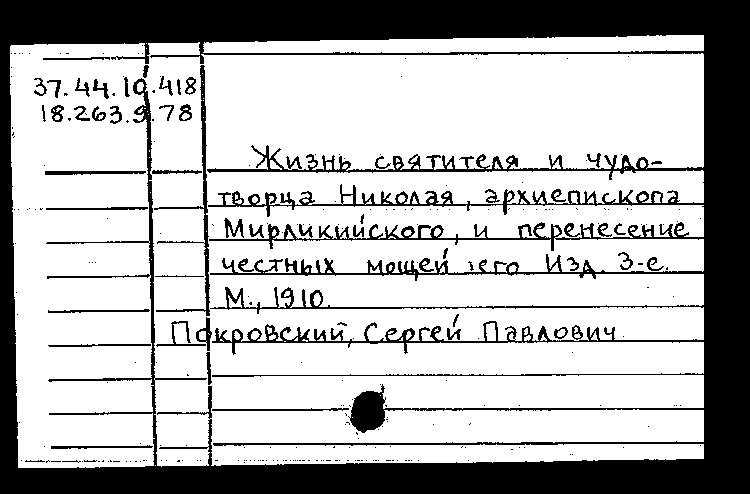 37.44.10.418
18.263.9.78
Жизнь святителя и чудо-
творца Николая, архиепископа
Мирликийского, и перенесение
честных мощей его Изд. 3-е.
М., 1910.
Покровский, Сергей Павлович